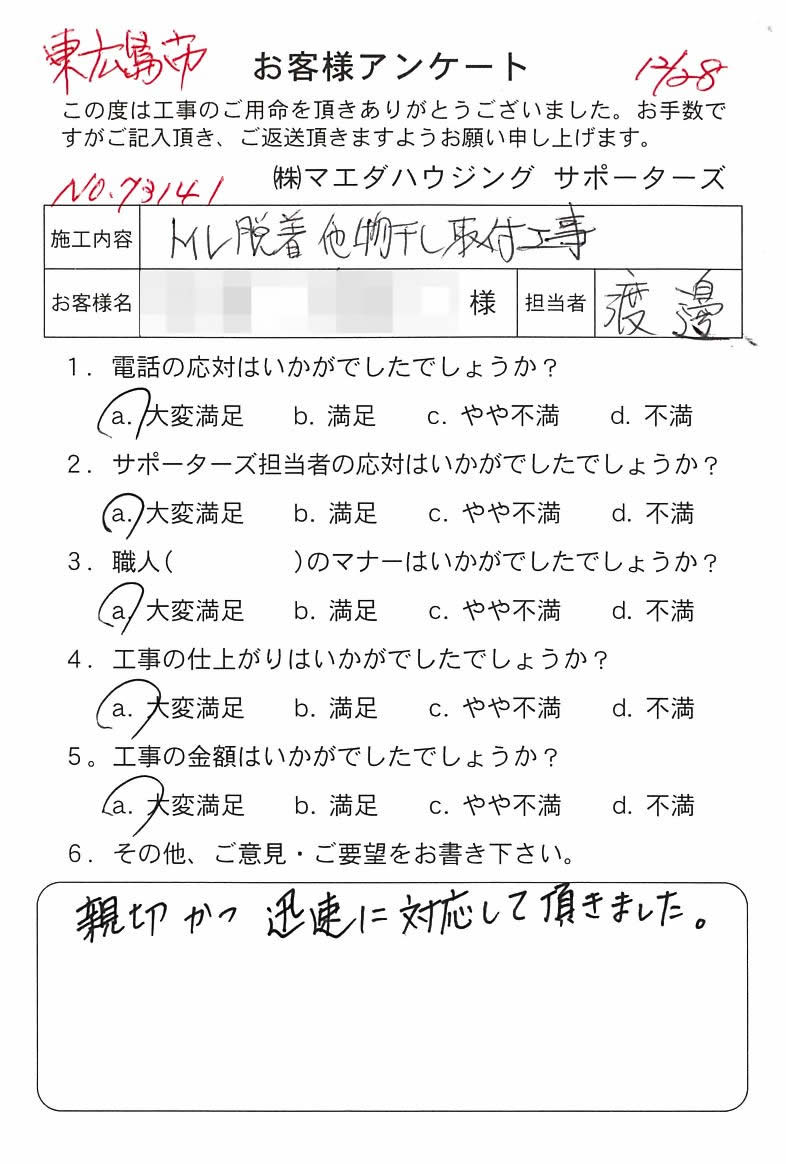 東広島市 お客様アンケート 12/28
この度は工事のご用命を頂きありがとうございました。お手数で
すがご記入頂き、ご返送頂きますようお願い申し上げます。
No.73141 ㈱マエダハウジング サポーターズ
施工内容 トイレ脱着他物干し取付工事
お客様名 様 担当者 渡邊
1. 電話の応対はいかがでしたでしょうか?
a. 大変満足 b. 満足 c. やや不満 d. 不満
2. サポーターズ担当者の応対はいかがでしたでしょうか?
a. 大変満足 b. 満足 c. やや不満 d. 不満
3. 職人( )のマナーはいかがでしたでしょうか?
a. 大変満足 b. 満足 c. やや不満 d. 不満
4. 工事の仕上がりはいかがでしたでしょうか?
a. 大変満足 b. 満足 c. やや不満 d. 不満
5。工事の金額はいかがでしたでしょうか?
a. 大変満足 b. 満足 c. やや不満 d. 不満
6. その他、ご意見・ご要望をお書き下さい。
親切かつ 迅速に対応して頂きました。